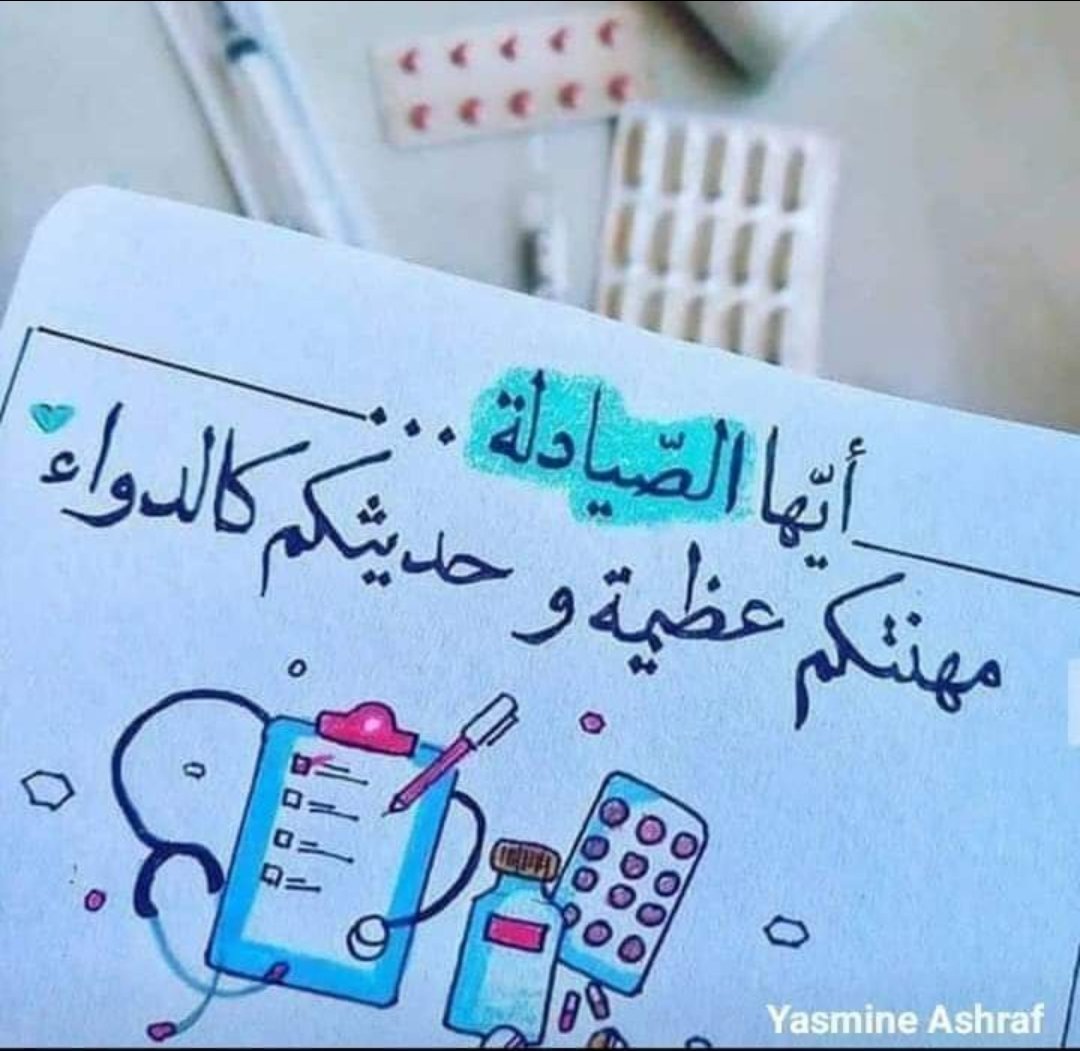 أيّها الصّيادلة ...
مهنتكم عظيمة و حديثكم كالدواء
Yasmine Ashraf